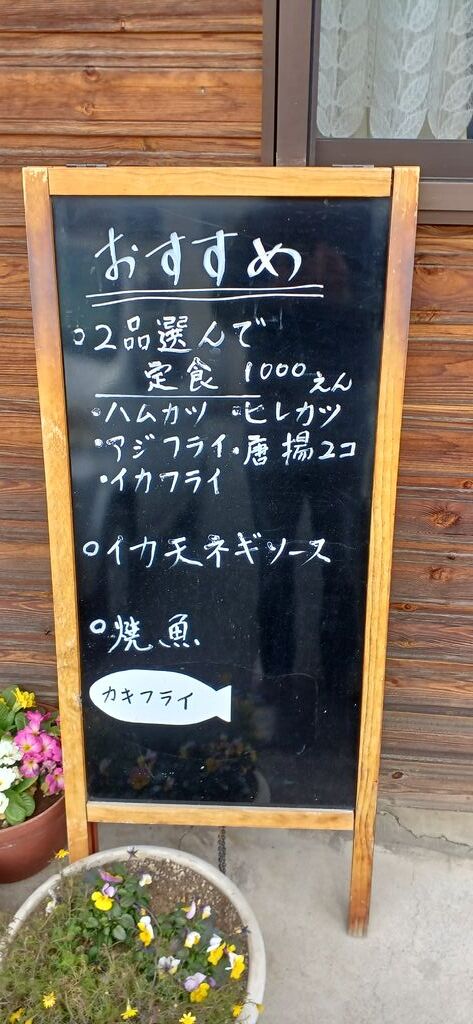 おすすめ
○2品選んで
定食 1000えん
・ハムカツ ・ヒレカツ
・アジフライ ・唐揚2コ
・イカフライ
○イカ天ネギソース
○焼魚
カキフライ